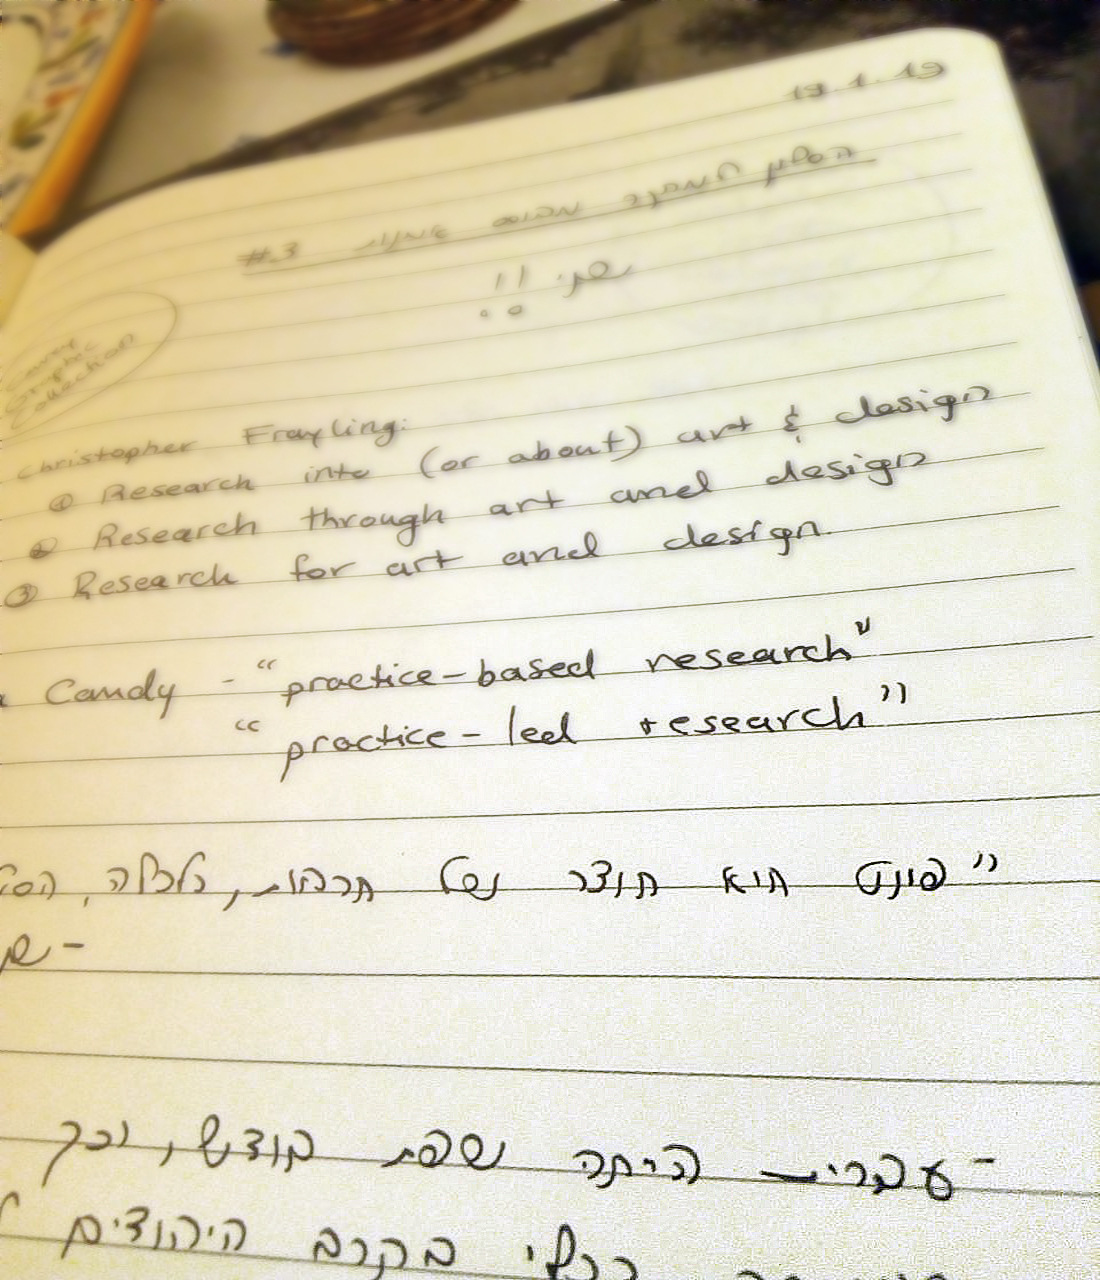 19.1.19
#3
שני!!
Graphic
Collection
Christopher Frayling:
① Research into (or about) art & design
② Research through art and design
③ Research for art and design.
Candy - "practice-based research"
"practice-led research"
"פונט הוא תוצר של תרבות, כלכלה,
- עברית היתה שפת קודש, וכך
בקרב היהודים